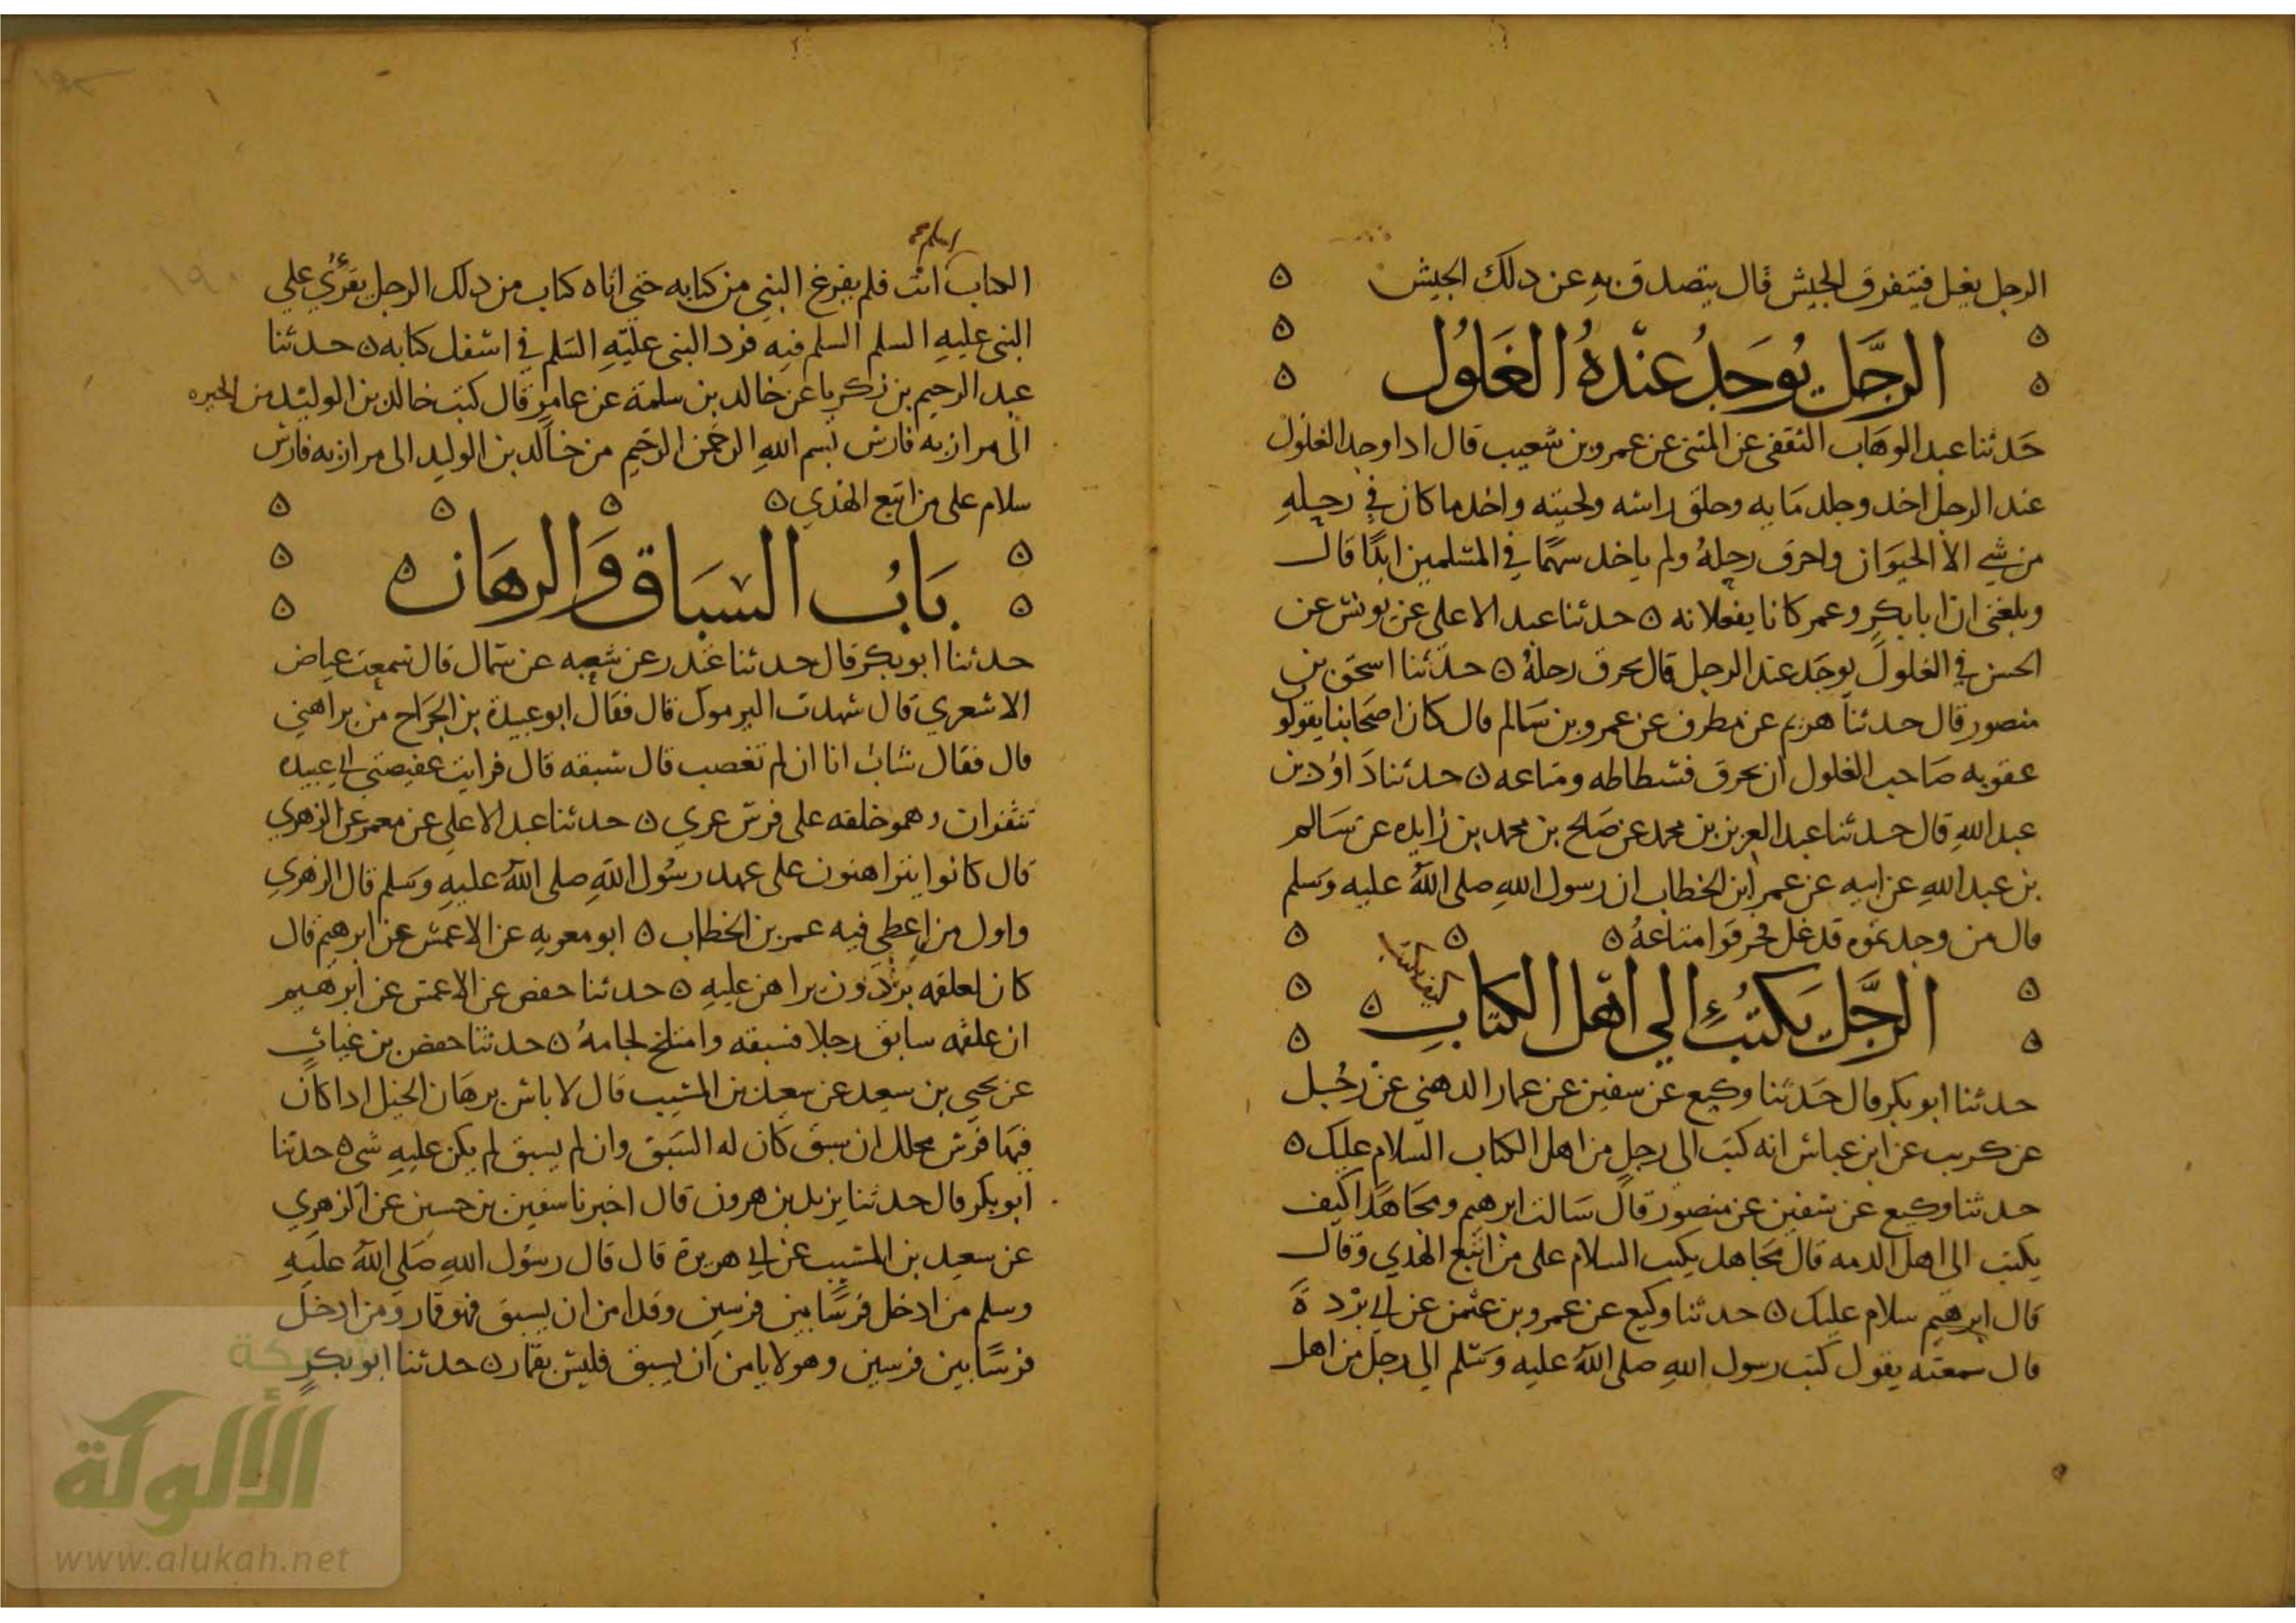 الرجل يغل فيتفرق الجيش قال يتصدق به عن دلك الجيش
الرجل يوجد عنده الغلول
حدثنا عبد الوهاب الثقفي عن المثنى عن عمرو بن شعيب قال ادا وجد الغلول
عند الرجل اخد وجلد مايه وحلق راسه ولحيته واخد ما كان في رحله
من شي الا الحيوان واحرق رحله ولم ياخد سهما في المسلمين ابدا قال
وبلغني ان ابا بكر وعمر كانا يفعلانه ه حدثنا عبد الاعلى عن يونس عن
الحسن في الغلول يوجد عند الرجل قال يحرق رحله ه حدثنا اسحق بن
منصور قال حدثنا هريم عن مطرف عن عمرو بن سالم قال كان اصحابنا يقولو
عقوبه صاحب الغلول ان يحرق فسطاطه ومتاعه ه حدثنا داود بن
عبد الله قال حدثنا عبد العزيز بن محمد عن صلح بن محمد بن زايده عن سالم
بن عبد الله عن ابيه عن عمر ابن الخطاب ان رسول الله صلى الله عليه وسلم
قال من وجدتموه قد غل فحرقوا متاعه ه
الرجل يكتب الي اهل الكتاب
كيف يكتب
حدثنا ابو بكر قال حدثنا وكيع عن سفين عن عمار الدهني عن رجل
عن كريب عن ابن عباس انه كتب الى رجل من اهل الكتاب السلام عليك ه
حدثنا وكيع عن سفين عن منصور قال سالت ابرهيم ومجاهدا كيف
يكتب الى اهل الدمه قال مجاهد يكتب السلام على من اتبع الهدي وقال
قال ابرهيم سلام عليك ه حدثنا وكيع عن عمرو بن عثمن عن ابي بردة
قال سمعته يقول كتب رسول الله صلى الله عليه وسلم الي رجل من اهل
الكتاب انت فلم يفرغ النبي من كتابه حتي اتاه كتاب من دلك الرجل يقري علي
النبي عليه السلم السلم فيه فرد النبي عليه السلم في اسفل كتابه ه حدثنا
عبد الرحيم بن زكريا عن خالد بن سلمة عن عامر قال كتب خالد بن الوليد من الحيره
الى مرازبه فارس بسم الله الرحمن الرحيم من خالد بن الوليد الى مرازبه فارس
سلام على من اتبع الهدي ه
باب السباق والرهان
حدثنا ابو بكر قال حدثنا غندر عن شعبه عن سمال قال سمعت عياض
الاشعري قال شهدت اليرموك قال فقال ابو عبيدة بن الجراح من يراهني
قال فقال شاب انا ان لم تغصب قال سبقه قال فرايت عقيصتي ابي عبيده
تنقزان وهو خلفه على فرس عري ه حدثنا عبد الاعلى عن معمر عن الزهري
قال كانوا يتراهنون على عهد رسول الله صلى الله عليه وسلم قال الزهري
واول من اعطى فيه عمر بن الخطاب ه ابو معويه عن الاعمش عن ابرهيم قال
كان لعلقمه بردون يراهن عليه ه حدثنا حفص عن الاعمش عن ابرهيم
ان علقمه سابق رجلا فسبقه وامتلخ لجامه ه حدثنا حفص بن غياث
عن يحيى بن سعيد عن سعيد بن المسيب قال لا باس برهان الخيل ادا كان
فيها فرس محلل ان سبق كان له السبق وان لم يسبق لم يكن عليه شي ه حدثنا
ابو بكر قال حدثنا يزيد بن هرون قال اخبرنا سفين بن حسين عن الزهري
عن سعيد بن المسيب عن ابي هريرة قال قال رسول الله صلى الله عليه
وسلم من ادخل فرسا بين فرسين وقد امن ان يسبق فهو قمار ومن ادخل
فرسا بين فرسين وهو لا يامن ان يسبق فليس بقمار ه حدثنا ابو بكر
شبكة
الألوكة
www.alukah.net